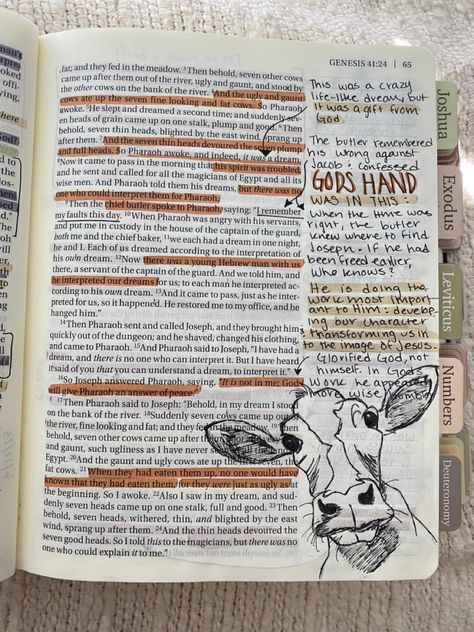 GENESIS 41:24 | 65
fat; and they fed in the meadow. 3Then behold, seven other cows
came up after them out of the river, ugly and gaunt, and stood by
the other cows on the bank of the river. 4And the ugly and gaunt
cows ate up the seven fine looking and fat cows. So Pharaoh
awoke. 5He slept and dreamed a second time; and suddenly sev-
en heads of grain came up on one stalk, plump and good. 6Then
behold, seven thin heads, blighted by the east wind, sprang up
after them. 7And the seven thin heads devoured the seven plump
and full heads. So Pharaoh awoke, and indeed, it was a dream.
8Now it came to pass in the morning that his spirit was troubled,
and he sent and called for all the magicians of Egypt and all its
wise men. And Pharaoh told them his dreams, but there was no
one who could interpret them for Pharaoh.
9Then the chief butler spoke to Pharaoh, saying: "I remember
my faults this day. 10When Pharaoh was angry with his servants,
and put me in custody in the house of the captain of the guard,
both me and the chief baker, 11we each had a dream in one night,
he and I. Each of us dreamed according to the interpretation of
his own dream. 12Now there was a young Hebrew man with us
there, a servant of the captain of the guard. And we told him, and
he interpreted our dreams for us; to each man he interpreted ac-
cording to his own dream. 13And it came to pass, just as he inter-
preted for us, so it happened. He restored me to my office, and he
hanged him."
14Then Pharaoh sent and called Joseph, and they brought him
quickly out of the dungeon; and he shaved, changed his clothing,
and came to Pharaoh. 15And Pharaoh said to Joseph, "I have had a
dream, and there is no one who can interpret it. But I have heard
it said of you that you can understand a dream, to interpret it."
16So Joseph answered Pharaoh, saying, "It is not in me; God
will give Pharaoh an answer of peace."
17Then Pharaoh said to Joseph: "Behold, in my dream I stood
on the bank of the river. 18Suddenly seven cows came up out of
the river, fine looking and fat; and they fed in the meadow. 19Then
behold, seven other cows came up after them, poor and very ugly
and gaunt, such ugliness as I have never seen in all the land of
Egypt. 20And the gaunt and ugly cows ate up the first seven, the
fat cows. 21When they had eaten them up, no one would have
known that they had eaten them, for they were just as ugly as at
the beginning. So I awoke. 22Also I saw in my dream, and sud-
denly seven heads came up on one stalk, full and good. 23Then
behold, seven heads, withered, thin, and blighted by the east
wind, sprang up after them. 24And the thin heads devoured the
seven good heads. So I told this to the magicians, but there was no
one who could explain it to me."
This was a crazy
life-like dream, but
it was a gift from
God
The butler remembered
his wrong against
Jacob : confessed
GODS HAND
WAS IN THIS :
when the time was
right, the butler
knew where to find
Joseph. If he had
been freed earlier,
who knows?
He is doing the
work most import
ant to Him : develop-
ing our character,
transforming us in
to the image of JESUS.
Glorified God, not
himself. In Gods
work he appeared
more wise & humble
Joshua
Exodus
Leviticus
Numbers
Deuteronomy